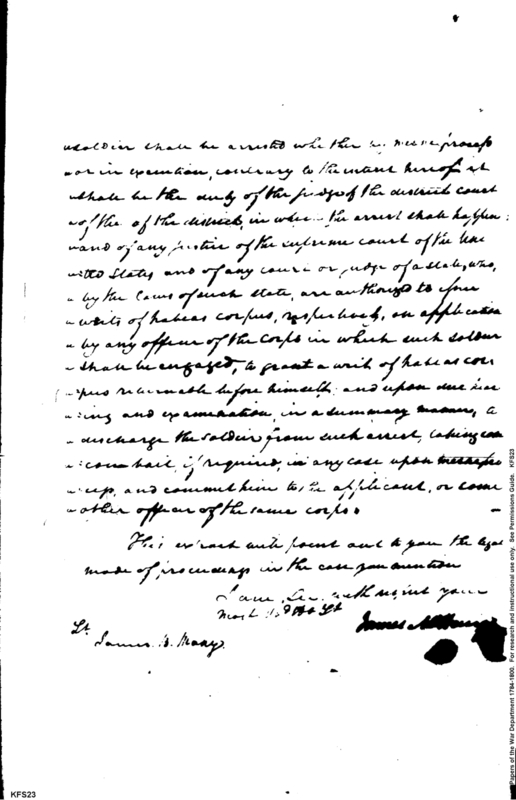 "soldier shall be arrested whether by mesne process
"or in execution, contrary to the intent hereof it
"shall be the duty of the judge of the district court
"of the of the district, in which the arrest shall happen;
"and of any justice of the supreme court of the Uni
"ted States and of any court or judge of a state, who,
"by the laws of such state, are authorized to issue
"writs of habeas corpus, respectively, on application
"by any officer of the corps in which such soldier
"shall be engaged, to grant a writ of habeas cor
"pus returnable before himself; and upon due hear
"ing and examination, in a summary manner, to
"discharge the soldier from such arrest, taking com
"mon bail, if required, in any case upon
and commit him to the applicant, or some
"other officer of the same corps.
This extract will point out to you the legal
mode of proceedings in the case you mention
I am Sir with respect your
Most Ob Hb St
James McHenry
Lt.
James B. Many
KFS23
Papers of the War Department 1784-1800. For research and instructional use only. See Permissions Guide. KFS23